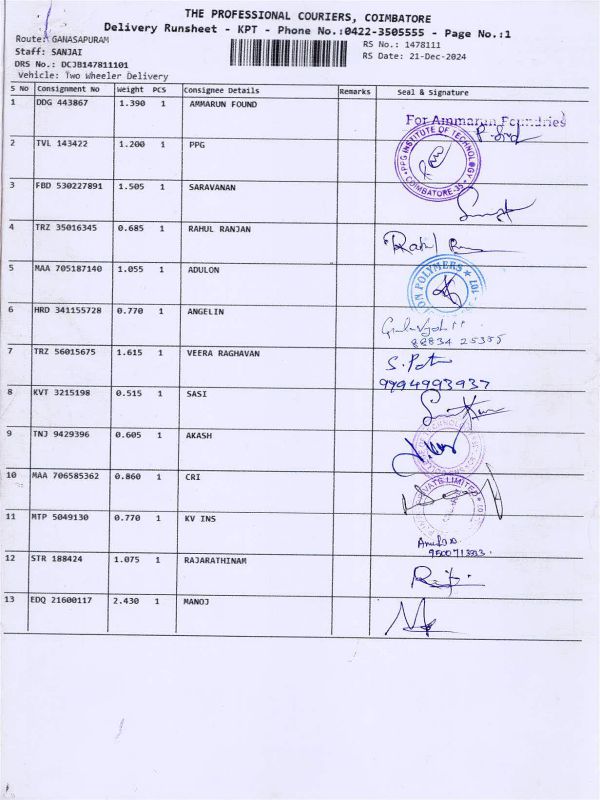 THE PROFESSIONAL COURIERS, COIMBATORE
Delivery Runsheet - KPT - Phone No.:0422-3505555 - Page No.:1
Route: GANASAPURAM
Staff: SANJAI
DRS No.: DCJB147811101
Vehicle: Two Wheeler Delivery
RS No.: 1478111
RS Date: 21-Dec-2024
S No Consignment No Weight PCS Consignee Details Remarks Seal & Signature
1 DDG 443867 1.390 1 AMMARUN FOUND
For Ammarun Foundries
2 TVL 143422 1.200 1 PPG
PPG INSTITUTE OF TECHNOLOGY
COIMBATORE-35
3 FBD 530227891 1.505 1 SARAVANAN
4 TRZ 35016345 0.685 1 RAHUL RANJAN
Rahul
5 MAA 705187140 1.055 1 ADULON
ON POLYMERS
6 HRD 341155728 0.770 1 ANGELIN
88834 25355
7 TRZ 56015675 1.615 1 VEERA RAGHAVAN
9994993937
8 KVT 3215198 0.515 1 SASI
9 TNJ 9429396 0.605 1 AKASH
10 MAA 706585362 0.860 1 CRI
PRIVATE LIMITED
11 MTP 5049130 0.770 1 KV INS
12 STR 188424 1.075 1 RAJARATHINAM
13 EDQ 21600117 2.430 1 MANOJ